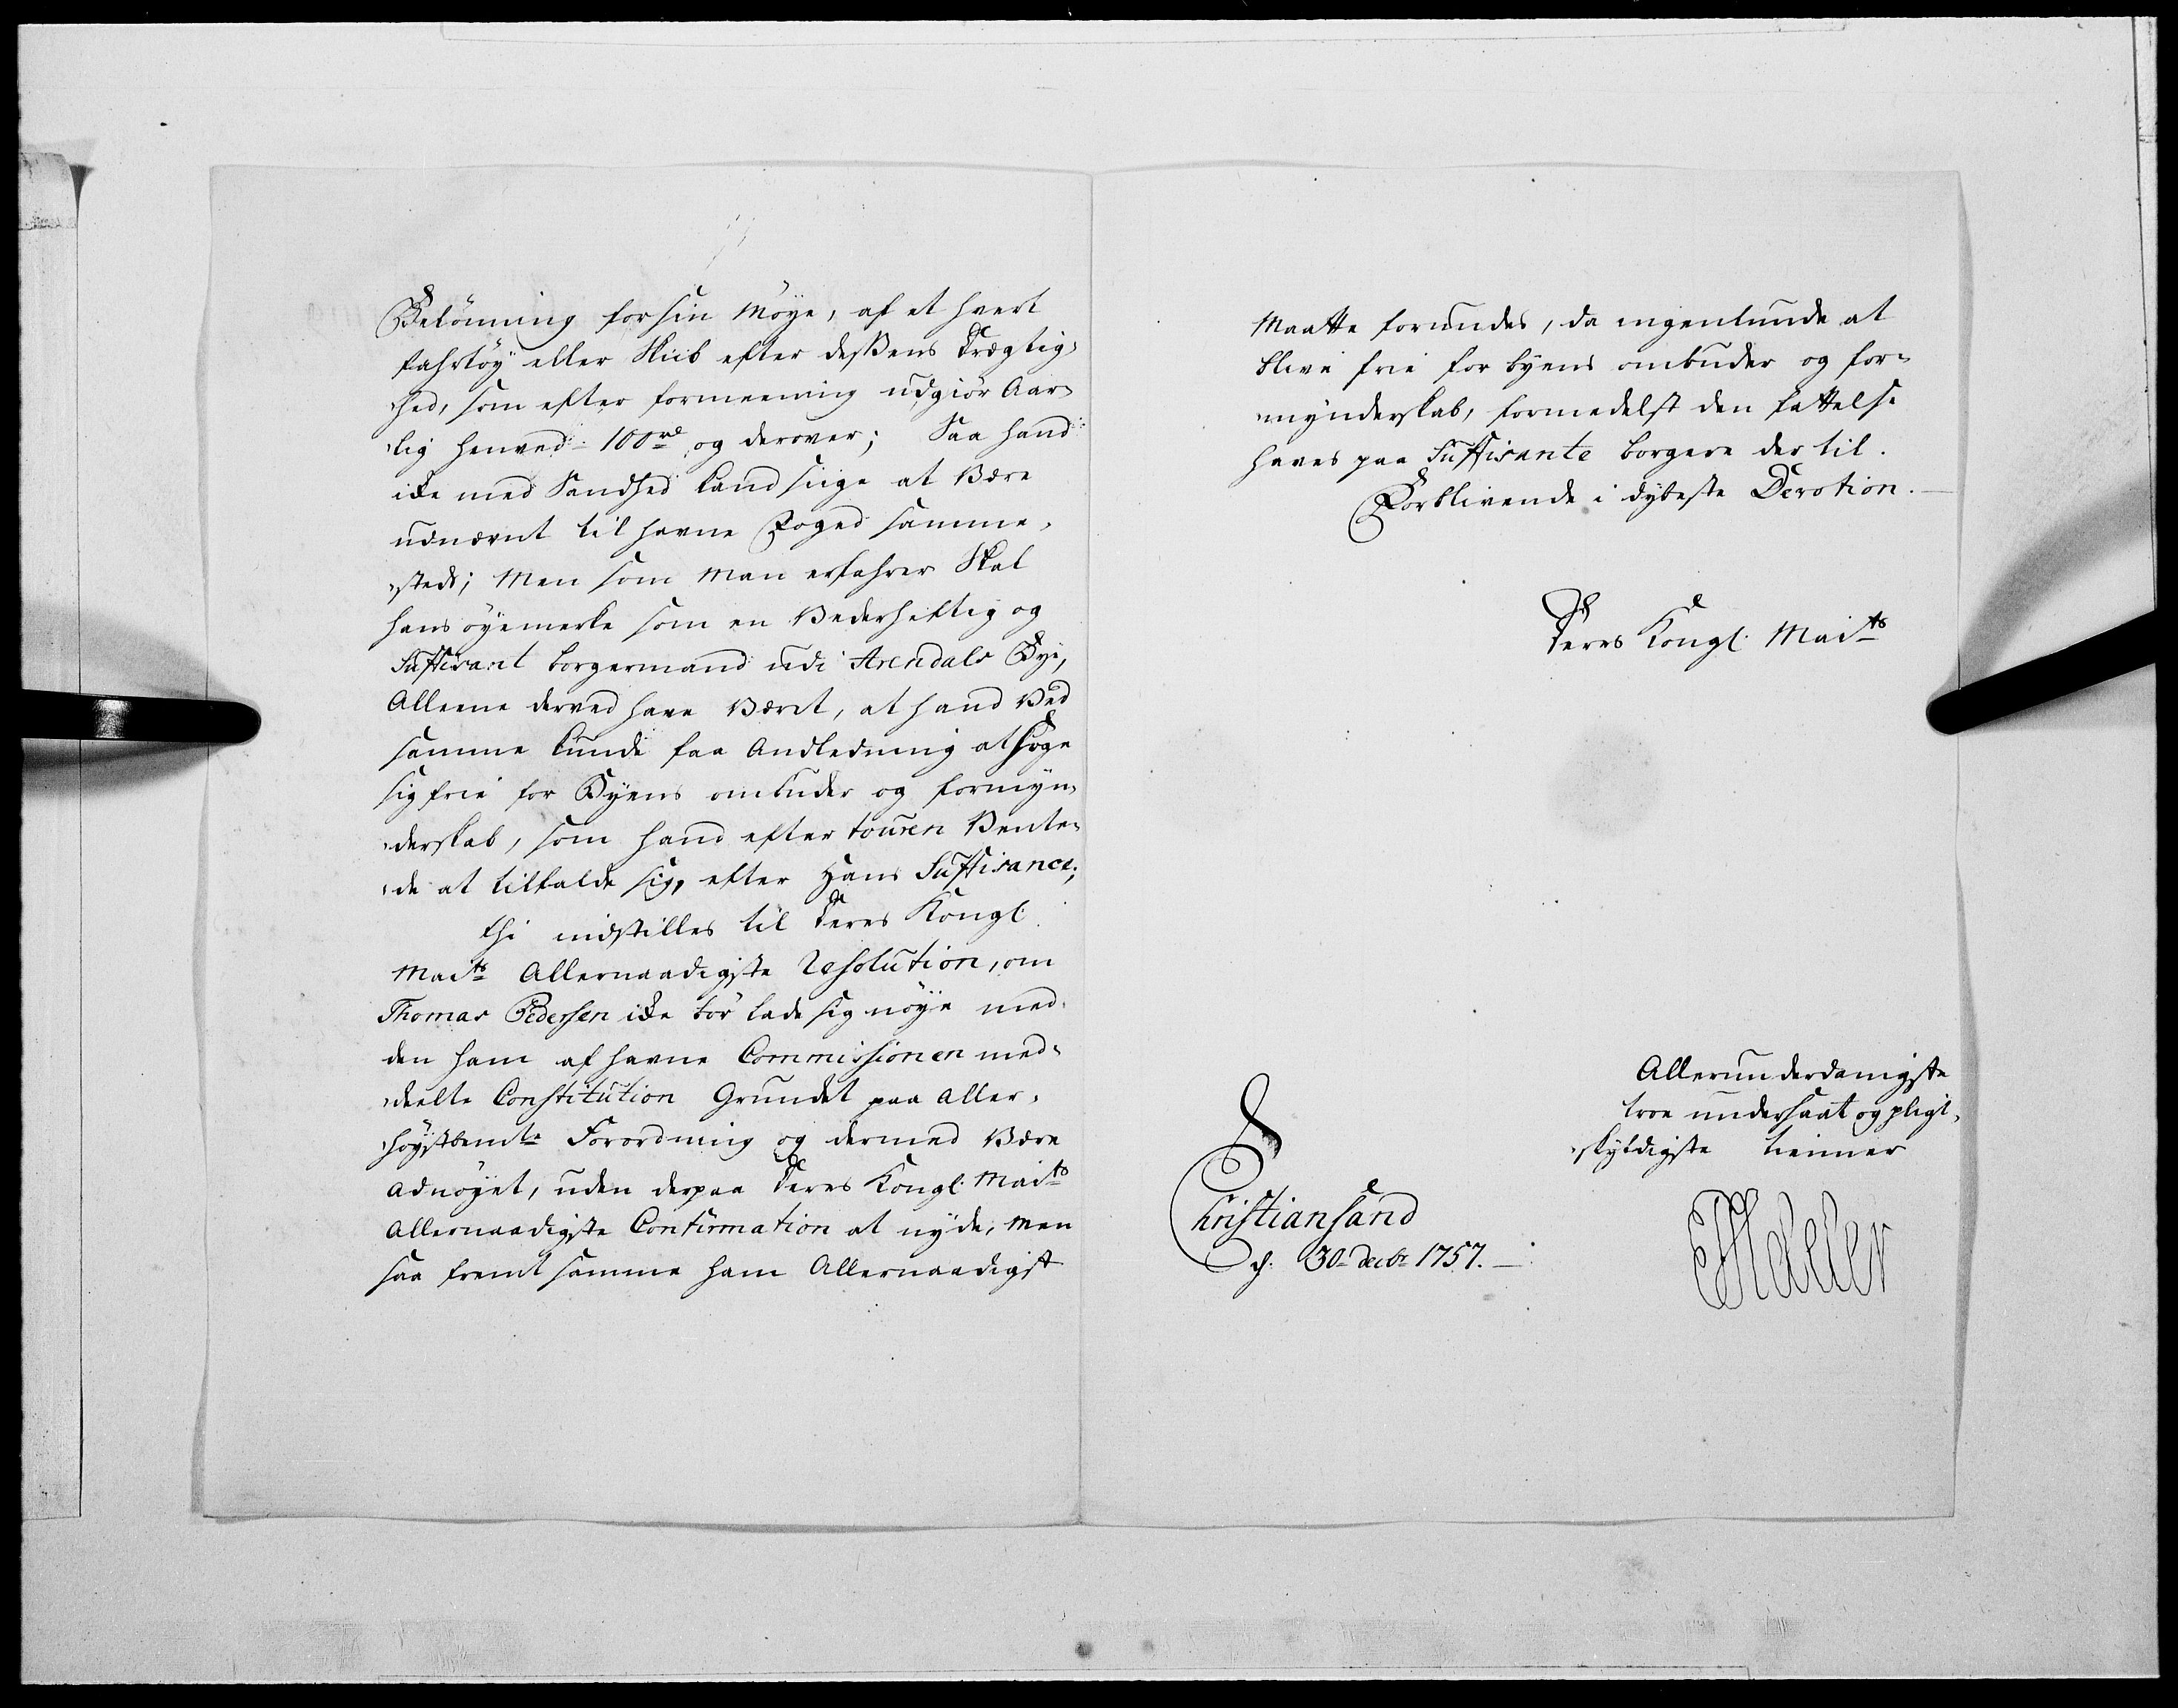 Belönning for sin Möye, af et hvert
fahrtöy eller Skib efter deßens Drægtig-
-hed, som efter formeening udgiör Aar-
-lig henved 100rd og derover; Saa hand
icke med Sandhed kand siige at Være
udnævnt til havne Foged samme-
-steds; Men som Man erfahrer Skal
hans öyemerke som en Vederheftig og
Suffisant borgermand udi Arendals Bye,
Alleene derved have Været, at hand Ved
samme kunde faa Andledning at söge
sig frie for Byens ombuder og formyn-
-derskab, som hand efter touren Vente-
-de at tilfalde sig, efter Hans Suffisance;
thi indstilles til Deres Kongl:
Maits Allernaadigste Resolution, om
Thomas Pedersen icke bör lade sig nöye med
den ham af havne Commissionen med-
-deelte Constitution Grundet paa Aller-
-höystbemte Forordning og dermed Være
Adnöyet, uden derpaa Deres Kongl: Maits
Allernaadigste Confirmation at nyde, Men
saa fremt samme ham Allernaadigst
Maatte forundes, da ingenlunde at
blive frie for byens ombuder og for-
-mynderskab, formedelst den fattelse
haves paa Suffisante borgere der til.
Forblivende i dybeste Devotion.
Deres Kongl: Maits
Allerunderdanigste
troe undersaat og pligt-
-skyldigste tienner
Christiansand
d: 30 decbr 1757.
Adeler